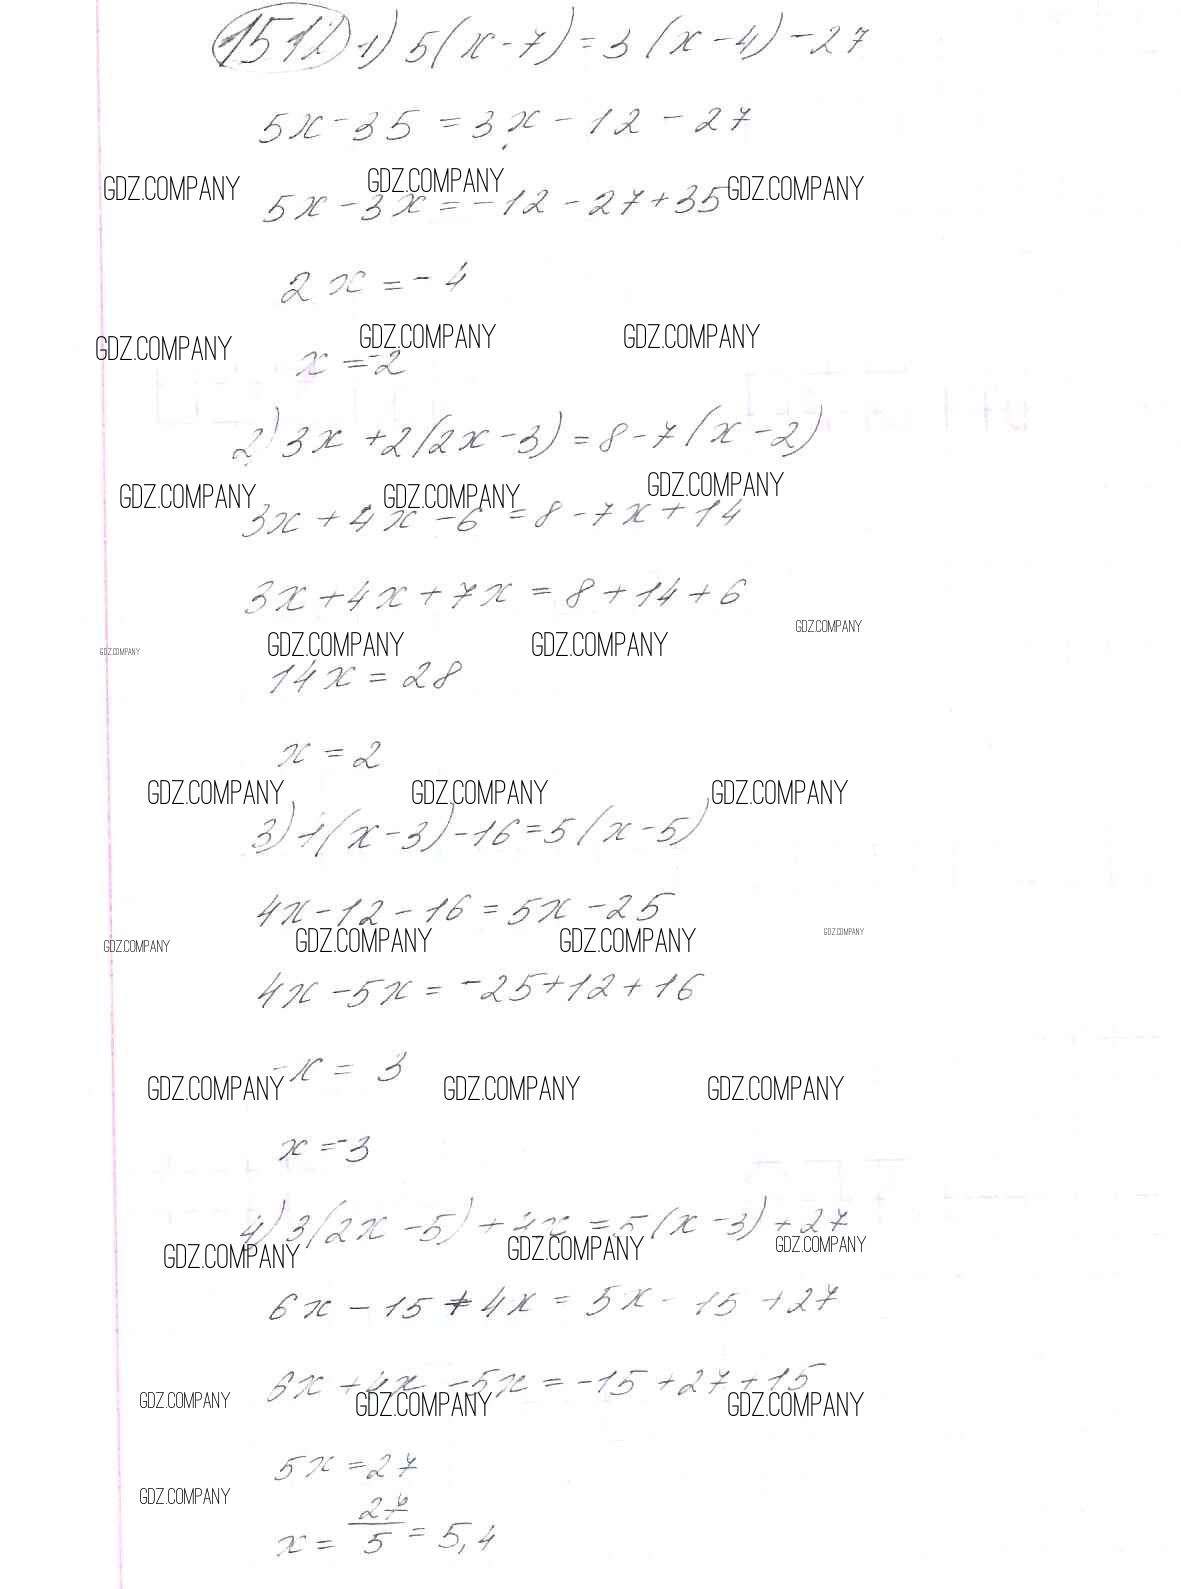 1512 1) 5(x-7)=3(x-4)-27
5x-35=3x-12-27
GDZ.COMPANY GDZ.COMPANY GDZ.COMPANY
5x-3x=-12-27+35
2x=-4
GDZ.COMPANY GDZ.COMPANY GDZ.COMPANY
x=-2
2) 3x+2(2x-3)=8-7(x-2)
GDZ.COMPANY GDZ.COMPANY GDZ.COMPANY
3x+4x-6=8-7x+14
3x+4x+7x=8+14+6
GDZ.COMPANY GDZ.COMPANY GDZ.COMPANY GDZ.COMPANY
14x=28
x=2
GDZ.COMPANY GDZ.COMPANY GDZ.COMPANY
3) 4(x-3)-16=5(x-5)
4x-12-16=5x-25
GDZ.COMPANY GDZ.COMPANY GDZ.COMPANY GDZ.COMPANY
4x-5x=-25+12+16
-x=3
GDZ.COMPANY GDZ.COMPANY GDZ.COMPANY
x=-3
4) 3(2x-5)+4x=5(x-3)+27
GDZ.COMPANY GDZ.COMPANY GDZ.COMPANY
6x-15+4x=5x-15+27
6x+4x-5x=-15+27+15
GDZ.COMPANY GDZ.COMPANY GDZ.COMPANY
5x=27
GDZ.COMPANY
x=27/5=5,4